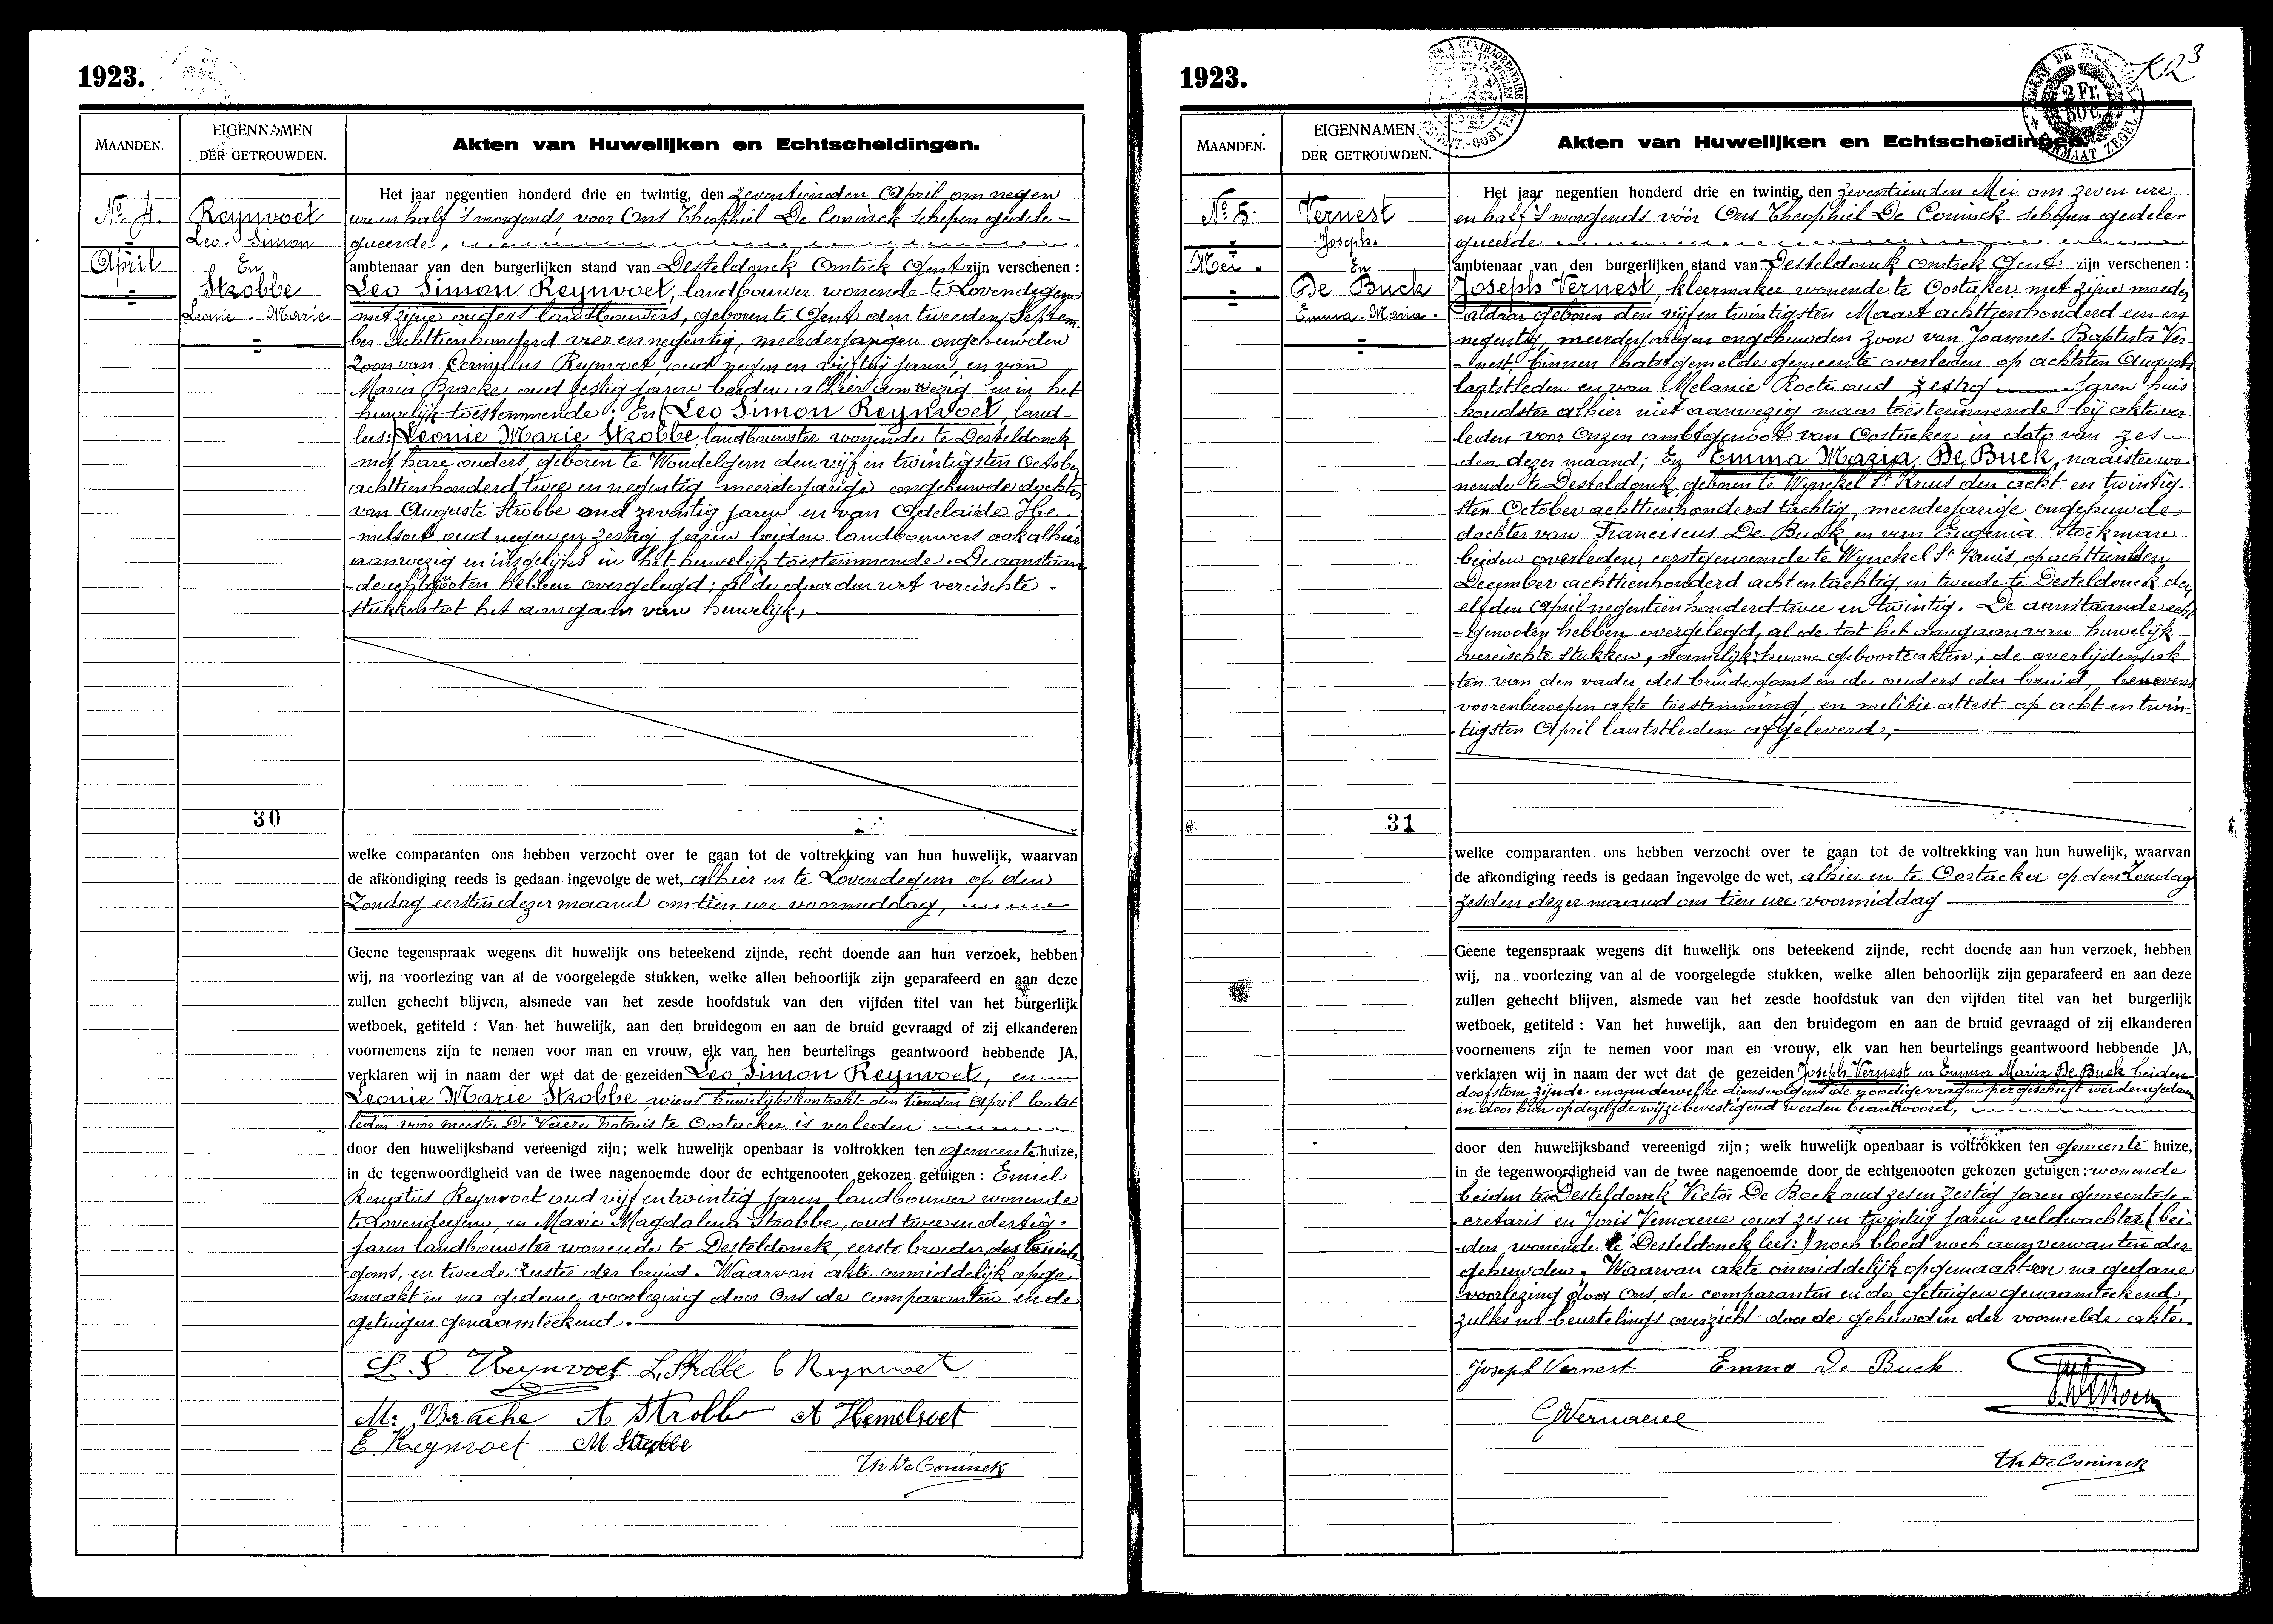 1923.
MAANDEN.
EIGENNAMEN
DER GETROUWDEN.
Akten van Huwelijken en Echtscheidingen.
No 4.
April
Reynvoet
Leo-Simon
En
Strobbe
Leonie-Marie
Het jaar negentien honderd drie en twintig, den zeventienden April om negen
ure en half 's morgends, voor Ons Theophiel De Coninck schepen gedele-
gueerde,
ambtenaar van den burgerlijken stand van Desteldonck Omtrek Gent zijn verschenen :
Leo Simon Reynvoet, landbouwer wonende te Lovendegem
met zijne ouders landbouwers, geboren te Gent den tweeden Septem-
ber achttienhonderd vier en negentig, meerderjarigen ongehuwden
Zoon van Camillus Reynvoet, oud negen en vijftig jaren, en van
Maria Bracke oud zestig jaren beiden alhier aanwezig en in het
huwelijk toestemmende. En (Leo Simon Reynvoet, land-
lees:) Leonie Marie Strobbe, landbouwster wonende te Desteldonck
met hare ouders, geboren te Wondelgem den vijf en twintigsten October
achttienhonderd twee en negentig meerderjarige ongehuwde dochter
van Auguste Strobbe oud zeventig jaren en van Adelaïde He-
melsoet oud negen en zestig jaren beiden landbouwers ook alhier
aanwezig en insgelijks in het huwelijk toestemmende. De aanstaan-
de echtgenooten hebben overgelegd; al de door den wet vereischte
stukken tot het aangaan van huwelijk,
30
welke comparanten ons hebben verzocht over te gaan tot de voltrekking van hun huwelijk, waarvan
de afkondiging reeds is gedaan ingevolge de wet, alhier en te Lovendegem op den
Zondag eersten dezer maand om tien ure voormiddag,
Geene tegenspraak wegens dit huwelijk ons beteekend zijnde, recht doende aan hun verzoek, hebben
wij, na voorlezing van al de voorgelegde stukken, welke allen behoorlijk zijn geparafeerd en aan deze
zullen gehecht blijven, alsmede van het zesde hoofdstuk van den vijfden titel van het burgerlijk
wetboek, getiteld : Van het huwelijk, aan den bruidegom en aan de bruid gevraagd of zij elkanderen
voornemens zijn te nemen voor man en vrouw, elk van hen beurtelings geantwoord hebbende JA,
verklaren wij in naam der wet dat de gezeiden Leo Simon Reynvoet, en
Leonie Marie Strobbe, wiens huwelijkskontrakt den tienden April laatst
leden voor meester De Vaere notaris te Oostacker is verleden
door den huwelijksband vereenigd zijn; welk huwelijk openbaar is voltrokken ten gemeente huize,
in de tegenwoordigheid van de twee nagenoemde door de echtgenooten gekozen getuigen : Emiel
Renatus Reynvoet oud vijf en twintig jaren landbouwer wonende
te Lovendegem, en Marie Magdalena Strobbe, oud twee en dertig
jaren landbouwster wonende te Desteldonck, eerste broeder des bruide-
goms, en tweede zuster der bruid. Waarvan akte onmiddelijk opge-
maakt en na gedane voorlezing door Ons de comparanten en de
getuigen genaamteekend.
L. S. Reynvoet L. Strobbe C Reynvoet
M. Bracke A Strobbe A Hemelsoet
E. Reynvoet M Strobbe
Th De Coninck
1923.
KR3
2 Fr.
MAANDEN.
EIGENNAMEN
DER GETROUWDEN.
Akten van Huwelijken en Echtscheidingen.
No 5.
Mei.
Vernest
Joseph.
En
De Buck
Emma-Maria.
Het jaar negentien honderd drie en twintig, den zeventienden Mei om zeven ure
en half 's morgends vóór Ons Theophiel De Coninck schepen gedele-
gueerde
ambtenaar van den burgerlijken stand van Desteldonck omtrek Gent zijn verschenen :
Joseph Vernest, kleermaker wonende te Oostaker met zijne moeder
aldaar geboren den vijf en twintigsten Maart achttienhonderd een en
negentig, meerderjarigen ongehuwden zoon van Joannes-Baptista Ver-
nest, binnen laatstgemelde gemeente overleden op achtsten Augusti
laatstleden en van Melanie Roets oud zestig jaren huis-
houdster alhier niet aanwezig maar toestemmende bij akte ver-
leden voor Onzen ambtgenoot van Oostacker in dato van zes-
den dezer maand; En Emma Maria De Buck, naaister wo-
nende te Desteldonck, geboren te Wynckel St Kruis den acht en twintig-
sten October achttienhonderd tachtig, meerderjarige ongehuwde
dochter van Franciscus De Buck, en van Eugenia Stockman
beiden overleden, eerstgenoemde te Wynckel St Kruis, op achttienden
December achttienhonderd acht en tachtig, en tweede te Desteldonck den
elfden April negentien honderd twee en twintig. De aanstaande echt-
genooten hebben overgelegd, al de tot het aangaan van huwelijk
vereischte stukken, namelijk: hunne geboorteakten, de overlijdensak-
ten van den vader des bruidegoms en de ouders der bruid, benevens
voorenberoepen akte toestemming, en militie attest op acht en twin-
tigsten April laatstleden afgeleverd,
31
welke comparanten ons hebben verzocht over te gaan tot de voltrekking van hun huwelijk, waarvan
de afkondiging reeds is gedaan ingevolge de wet, alhier en te Oostacker op den Zondag
zesden dezer maand om tien ure voormiddag
Geene tegenspraak wegens dit huwelijk ons beteekend zijnde, recht doende aan hun verzoek, hebben
wij, na voorlezing van al de voorgelegde stukken, welke allen behoorlijk zijn geparafeerd en aan deze
zullen gehecht blijven, alsmede van het zesde hoofdstuk van den vijfden titel van het burgerlijk
wetboek, getiteld : Van het huwelijk, aan den bruidegom en aan de bruid gevraagd of zij elkanderen
voornemens zijn te nemen voor man en vrouw, elk van hen beurtelings geantwoord hebbende JA,
verklaren wij in naam der wet dat de gezeiden Joseph Vernest en Emma Maria De Buck beiden
doofstom zijnde en aan dewelke diensvolgens de noodige vragen per geschrift werden gedaan
en door hun op dezelfde wijze bevestigend werden beantwoord,
door den huwelijksband vereenigd zijn; welk huwelijk openbaar is voltrokken ten gemeente huize,
in de tegenwoordigheid van de twee nagenoemde door de echtgenooten gekozen getuigen : wonende
beiden te Desteldonck Victor De Bock oud zes en zestig jaren gemeentese-
cretaris en Joris Vermaeve oud zes en twintig jaren veldwachter (bei-
den wonende te Desteldonck lees:) noch bloed noch aanverwanten der
gehuwden. Waarvan akte onmiddelijk opgemaakt en na gedane
voorlezing door Ons, de comparanten en de getuigen genaamteekend,
zulks na beurtelings overzicht door de gehuwden der voormelde akte.
Joseph Vernest Emma De Buck
GVermaeve
Th De Coninck